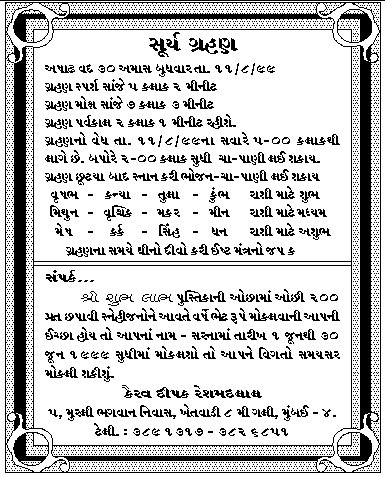 સૂર્ય ગ્રહણ
અષાઢ વદ ૩૦ અમાસ બુધવાર તા. ૧૧/૮/૯૯
ગ્રહણ સ્પર્શ સાંજે ૫ કલાક ૨ મીનીટ
ગ્રહણ મોક્ષ સાંજે ૭ કલાક ૩ મીનીટ
ગ્રહણ પર્વકાળ ૨ કલાક ૧ મીનીટ રહીશે.
ગ્રહણનો વેધ તા. ૧૧/૮/૯૯ના સવારે ૫-૦૦ કલાકથી
લાગે છે. બપોરે ૨-૦૦ કલાક સુધી ચા-પાણી લઈ શકાય.
ગ્રહણ છૂટયા બાદ સ્નાન કરી ભોજન-ચા-પાણી લઈ શકાય
વૃષભ - કન્યા - તુલા - કુંભ રાશી માટે શુભ
મિથુન - વૃશ્ચિક - મકર - મીન રાશી માટે મધ્યમ
મેષ - કર્ક - સિંહ - ધન રાશી માટે અશુભ
ગ્રહણના સમયે ઘીનો દીવો કરી ઈષ્ટ મંત્રનો જપ ક
સંપર્ક...
શ્રી શુભ લાભ પુસ્તિકાની ઓછામાં ઓછી ૨૦૦
પ્રત છપાવી સ્નેહીજનોને આવતે વર્ષે ભેટ રૂપે મોકલવાની આપની
ઈચ્છા હોય તો આપનાં નામ - સરનામાં તારીખ ૧ જૂનથી ૩૦
જૂન ૧૯૯૯ સુધીમાં મોકલશો તો આપને વિગતો સમયસર
મોકલી શકીશું.
કૈરવ દીપક રેશમદલાલ
૫, મુરલી ભગવાન નિવાસ, ખેતવાડી ૮ મી ગલી, મુંબઈ - ૪.
ટેલી. : ૩૮૯ ૧૩૧૭ - ૩૮૨ ૬૮૫૧